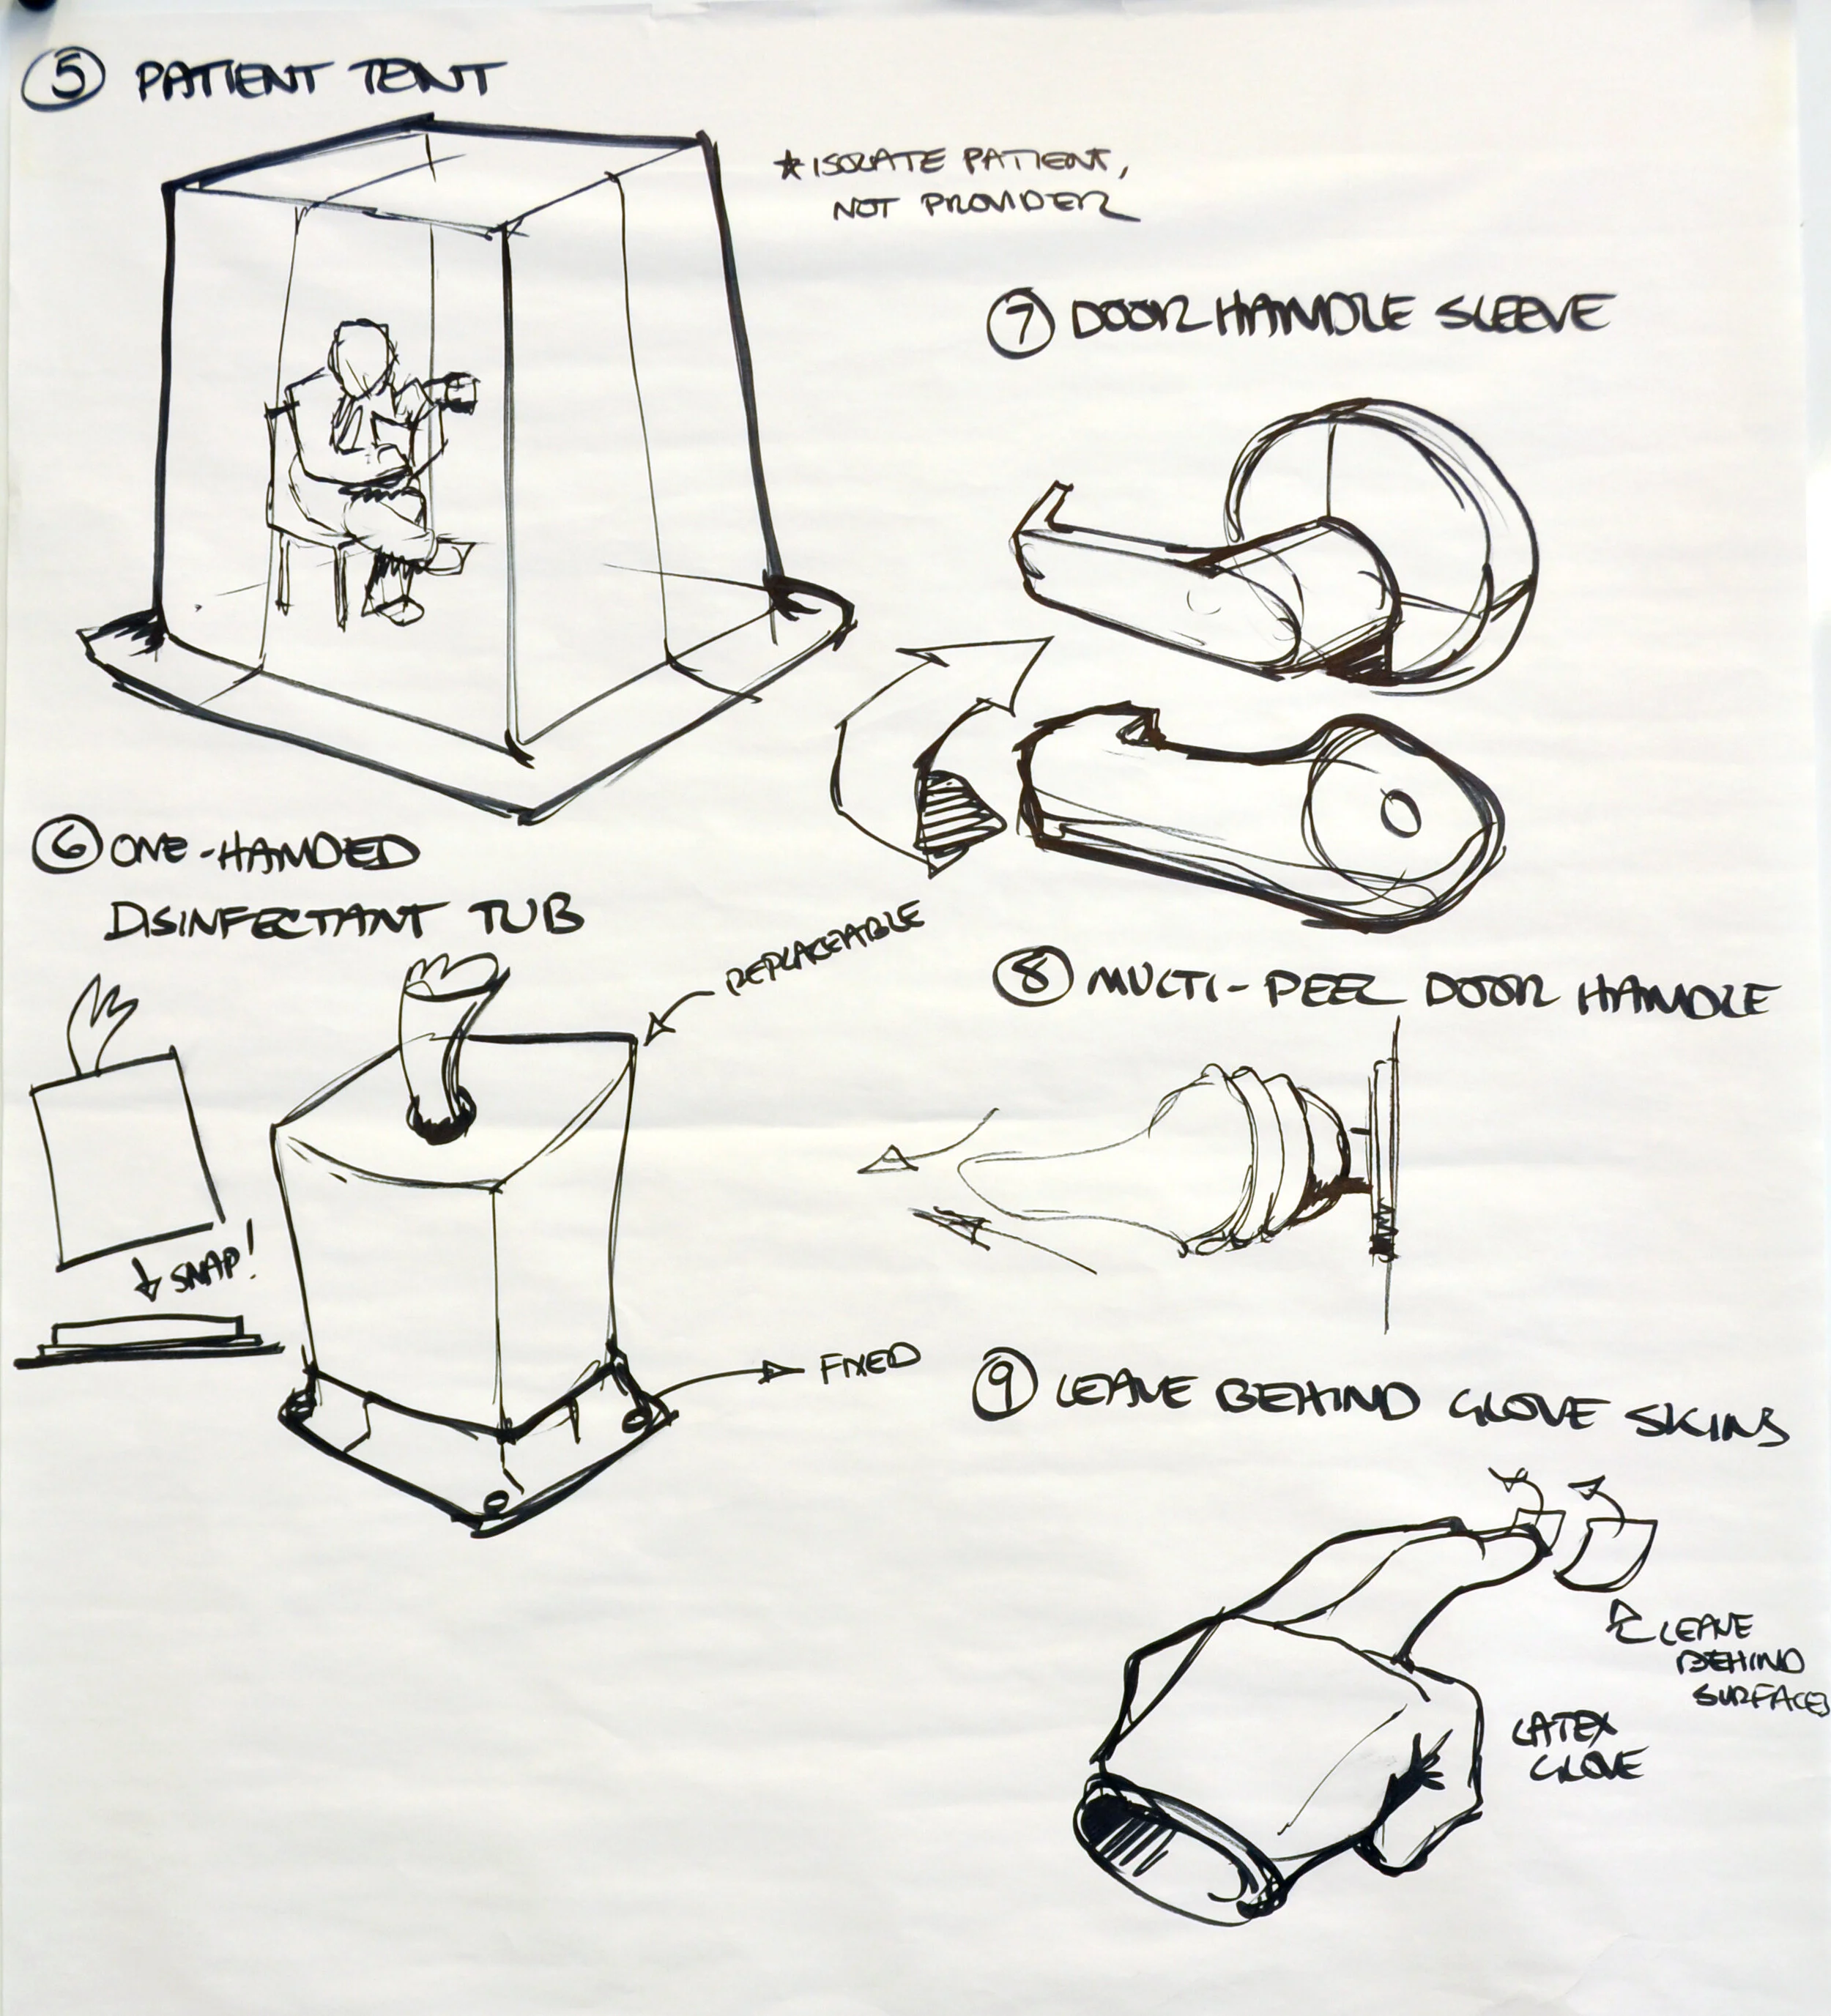 5 PATIENT TENT
★ ISOLATE PATIENT,
NOT PROVIDER
6 ONE-HANDED
DISINFECTANT TUB
REPLACEABLE
SNAP!
FIXED
7 DOOR HANDLE SLEEVE
8 MULTI-PEEL DOOR HANDLE
9 LEAVE BEHIND GLOVE SKINS
LEAVE
BEHIND
SURFACES
LATEX
GLOVE